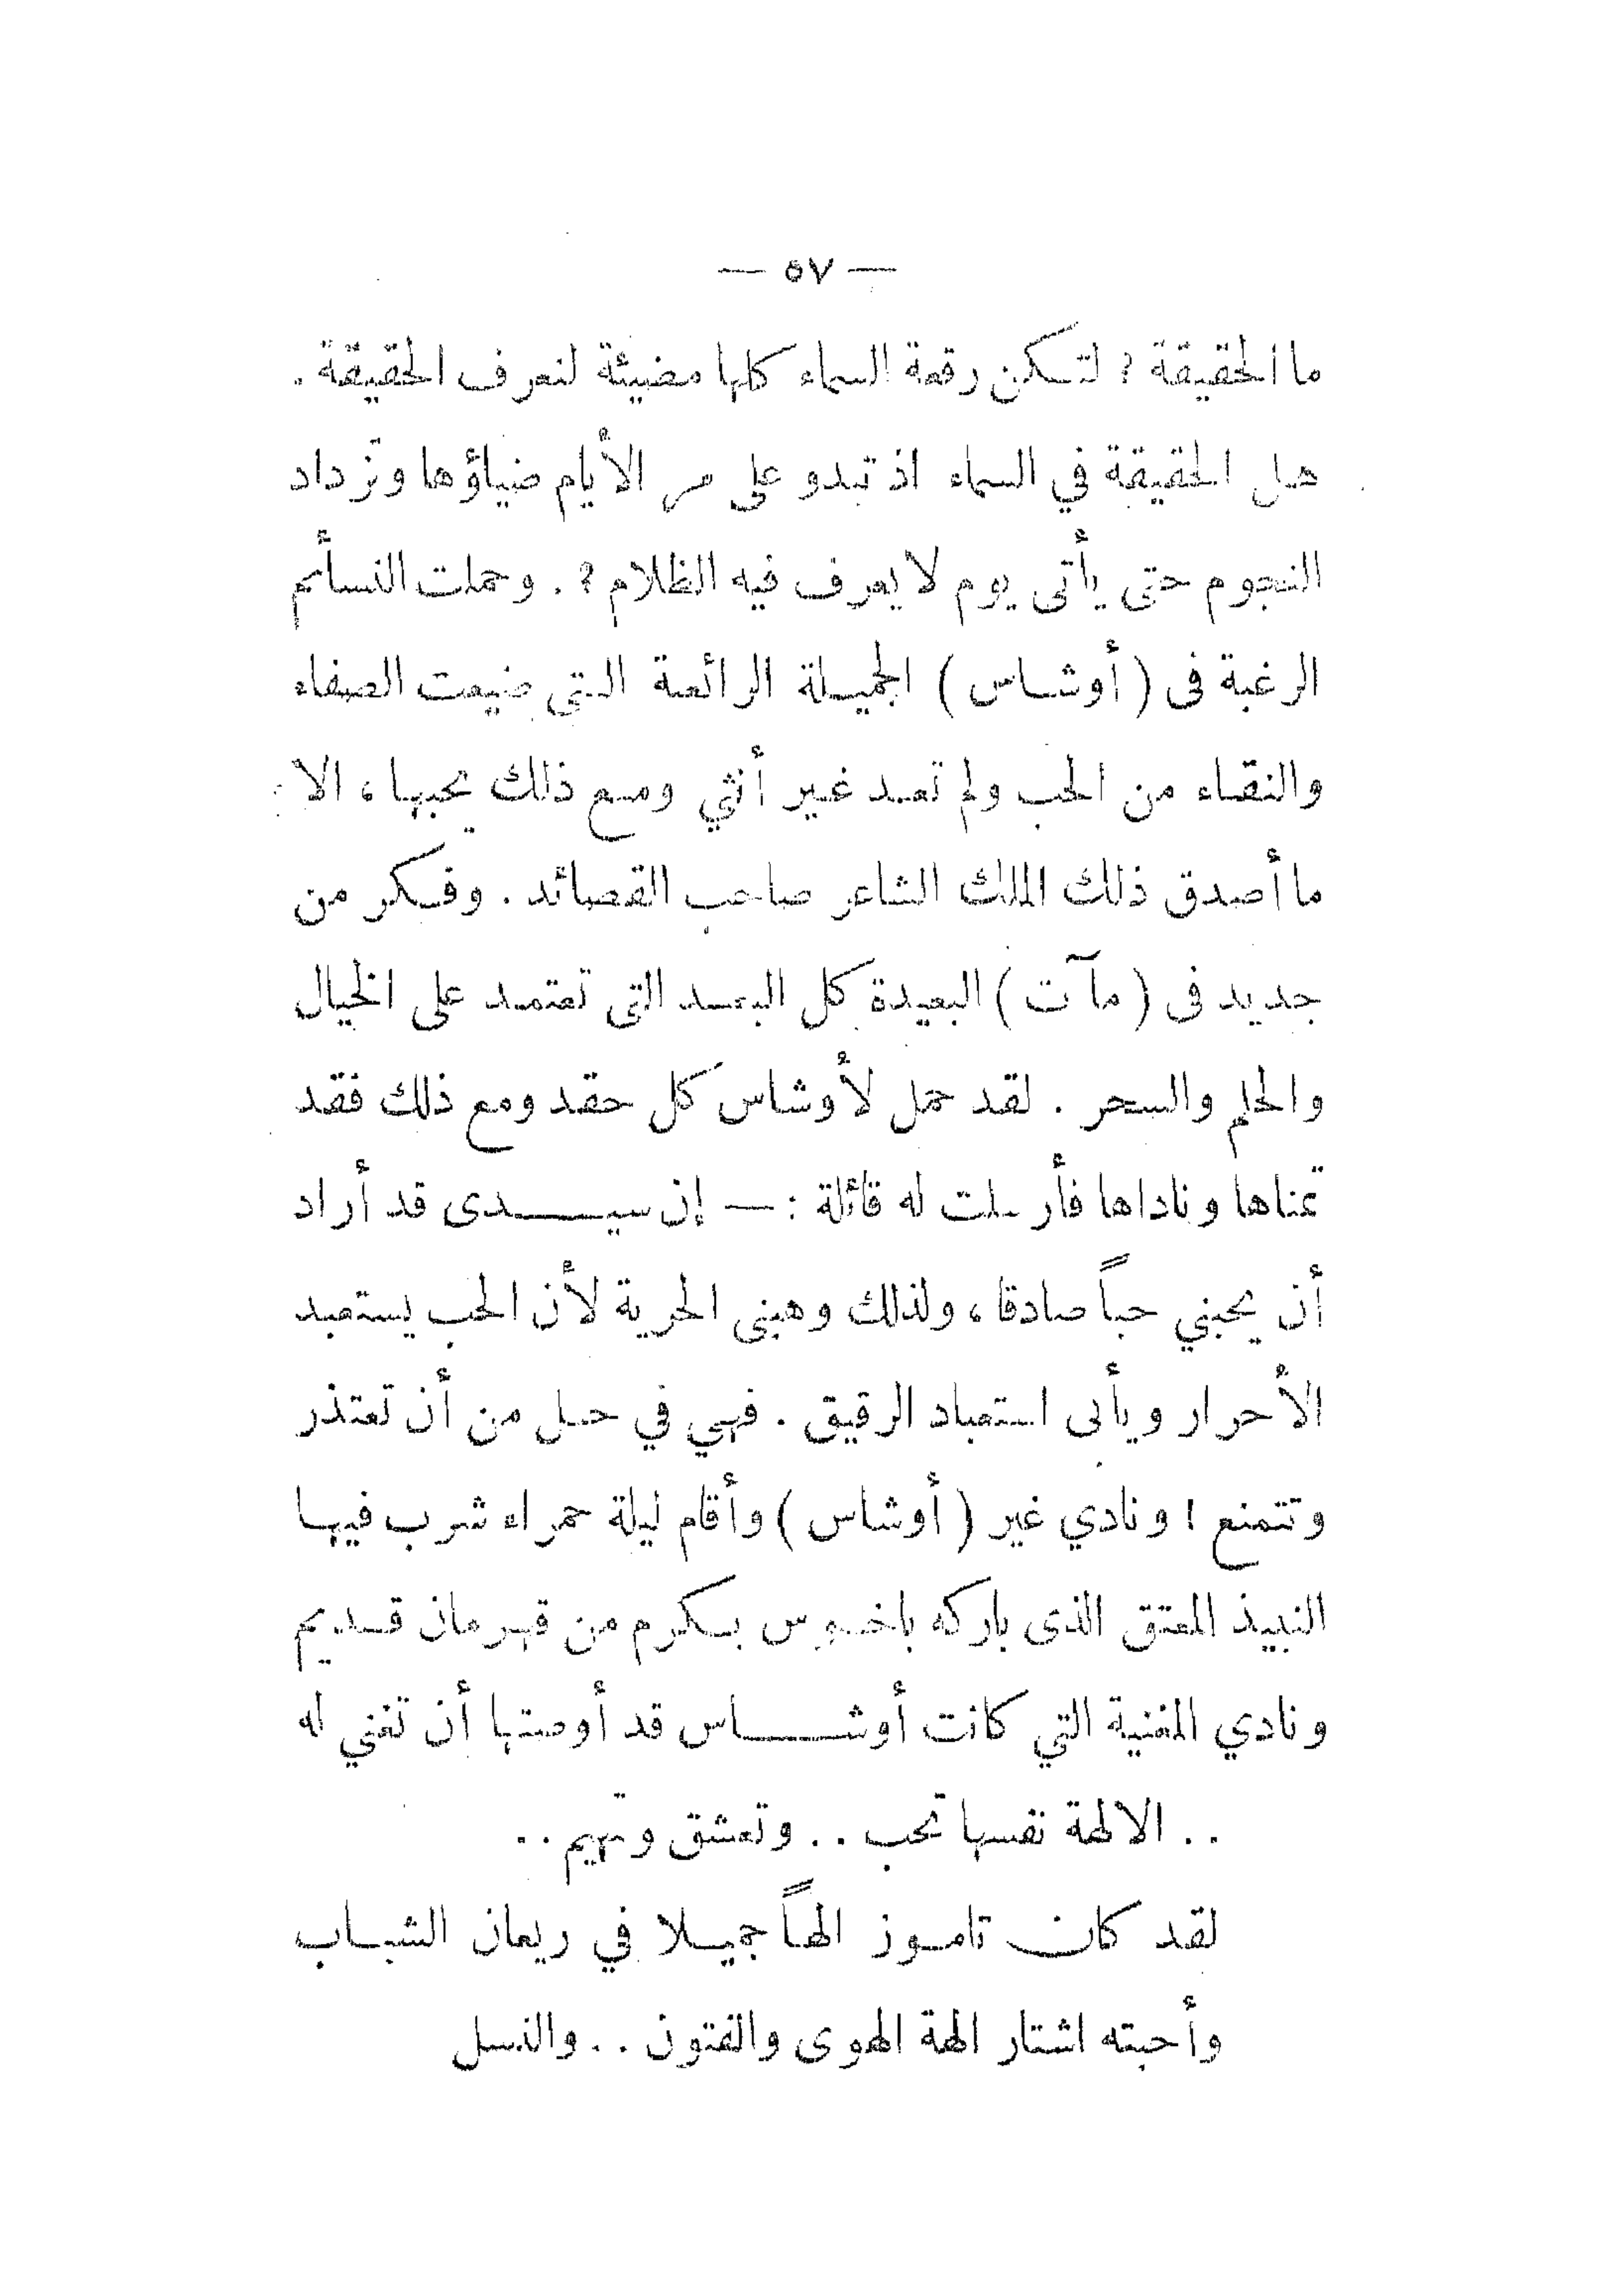 — ٥٧ —
ما الحقيقة ؟ لتكن رقعة السماء كلها مضيئة لنعرف الحقيقة .
هل الحقيقة في السماء اذ تبدو على مر الأيام ضياؤها وتزداد
النجوم حتى يأتى يوم لا يعرف فيه الظلام ؟ . وحملت النسأئم
الرغبة فى ( أوشاس ) الجميلة الرائعة التى ضيعت الصفاء
والنقاء من الحب ولم تعد غير أنثي ومع ذلك يحبها ، الا
ما أصدق ذلك الملك الشاعر صاحب القصائد . وفكر من
جديد فى ( مآت ) البعيدة كل البعد التى تعتمد على الخيال
والحلم والسحر . لقد حمل لأوشاس كل حقد ومع ذلك فقد
تمناها وناداها فأرسلت له قائلة : — إن سيدى قد أراد
أن يحبني حباً صادقا ، ولذلك وهبنى الحرية لأن الحب يستعبد
الأحرار ويأبى استعباد الرقيق . فهي في حل من أن تعتذر
وتتمنع ! ونادي غير ( أوشاس ) وأقام ليلة حمراء شرب فيها
النبيذ المعتق الذى باركه باخوس بكرم من قهرمان قديم
ونادي المغنية التي كانت أوشاس قد أوصتها أن تغني له
. . الالهة نفسها تحب . . وتعشق وتهيم . .
لقد كان تاموز الهاً جميلا في ريعان الشباب
وأحبته اشتار الهة الهوى والفتون . . والنسل